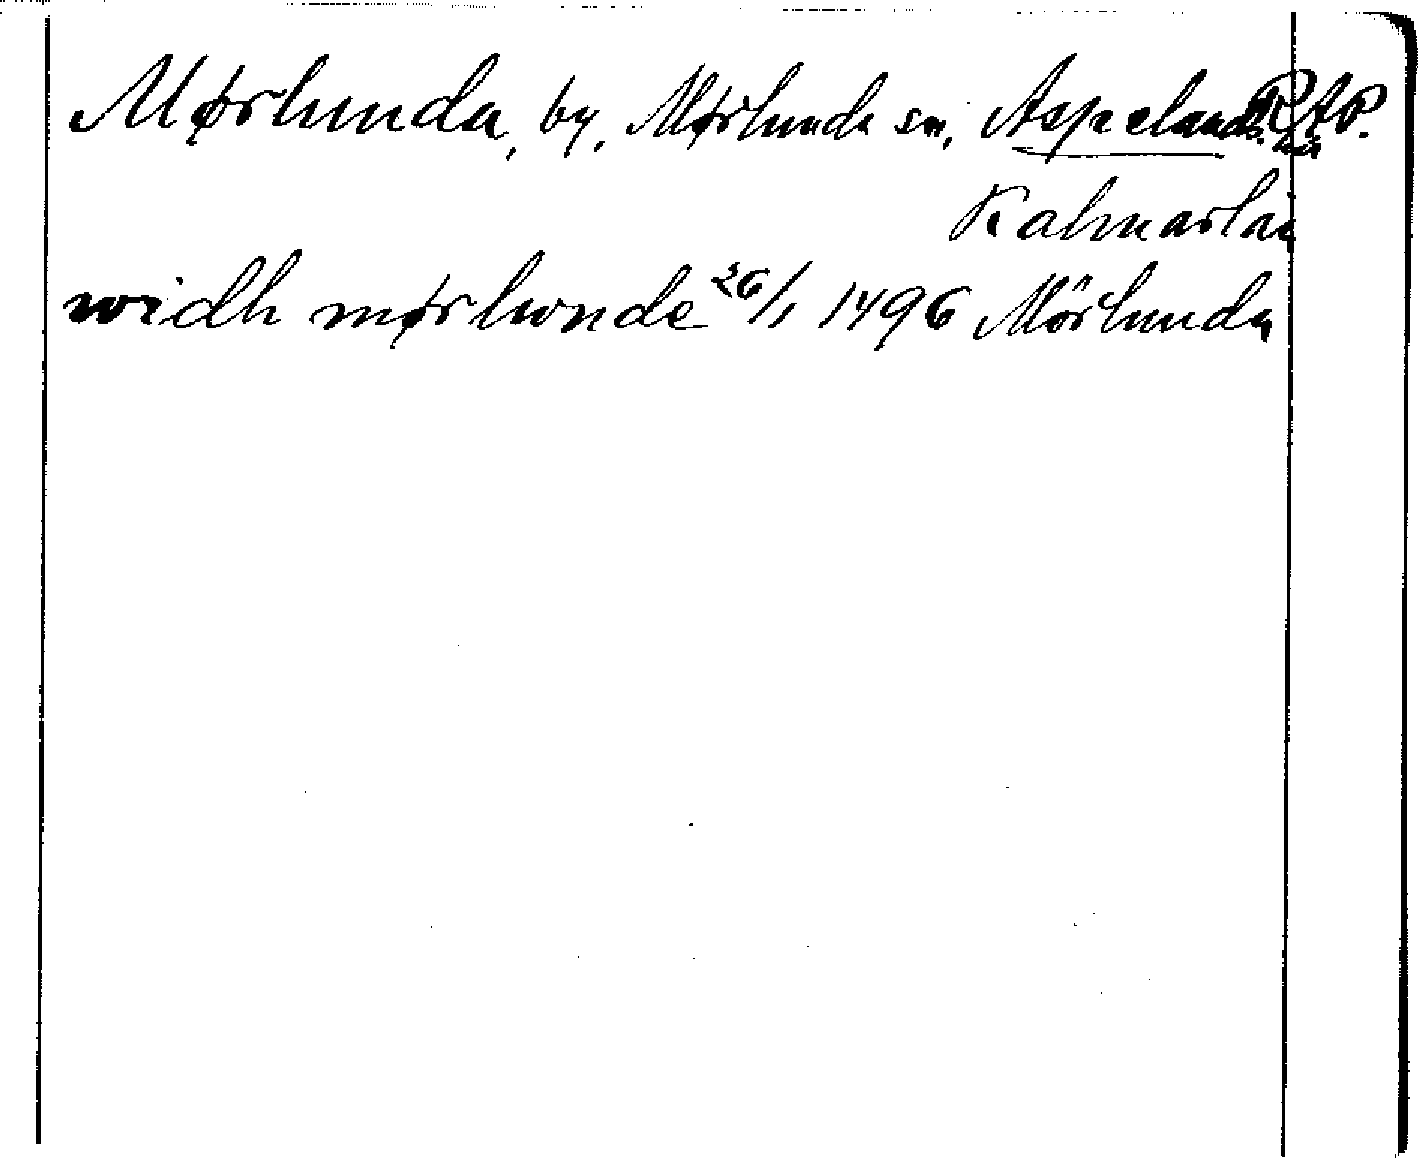 Mørlunda, by, Mørlunda sn, Aspelands RAP.
hd
Kalmarlän
widh mørlwnde 26/1 1496 Mörlunda